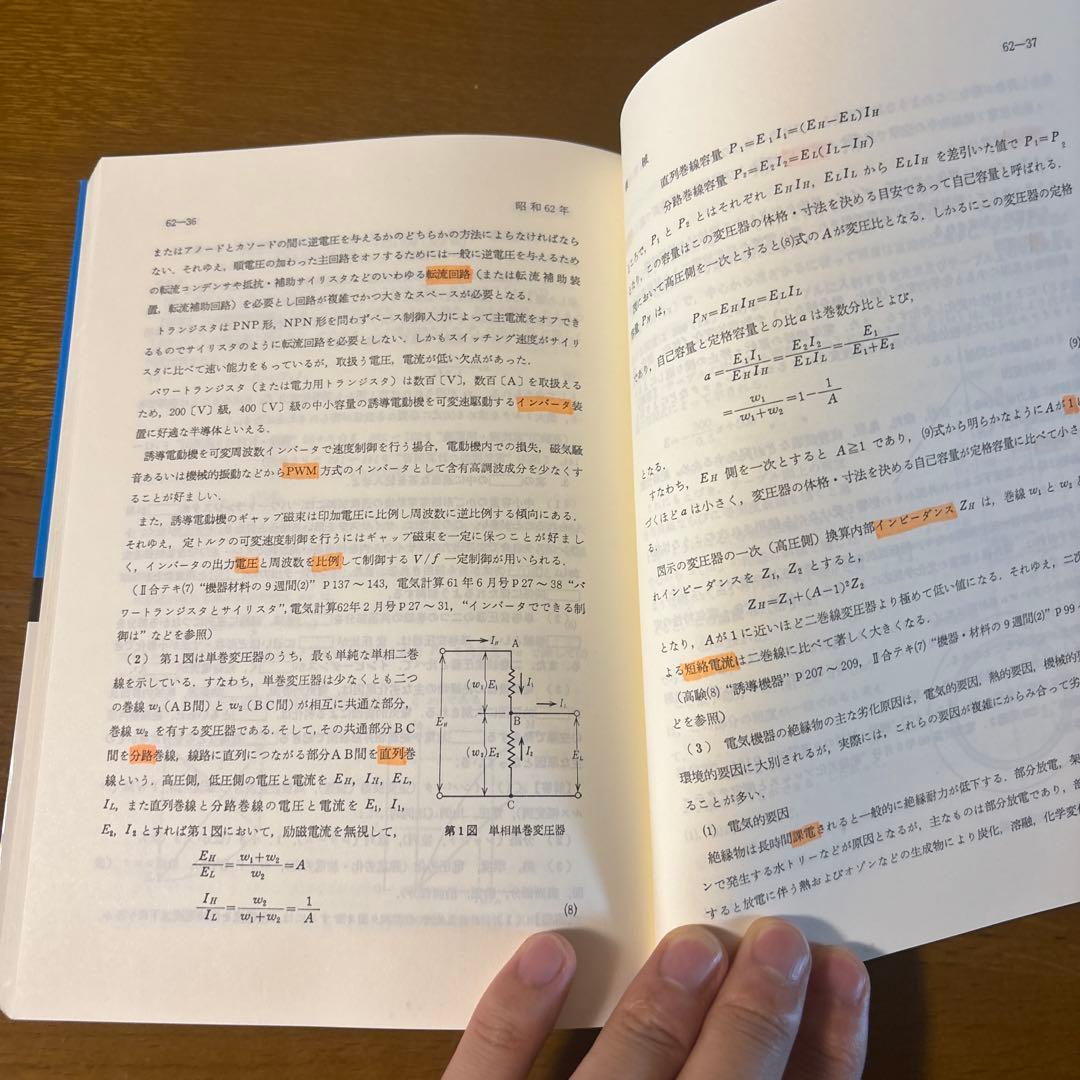 62—36
昭和62年
またはアノードとカソードの間に逆電圧を与えるかのどちらかの方法によらなければなら
ない．それゆえ，順電圧の加わった主回路をオフするためには一般に逆電圧を与えるため
の転流コンデンサや抵抗・補助サイリスタなどのいわゆる転流回路（または転流補助装
置，転流補助回路）を必要とし回路が複雑でかつ大きなスペースが必要となる．
トランジスタは PNP 形，NPN 形を問わずベース制御入力によって主電流をオフでき
るものでサイリスタのように転流回路を必要としない．しかもスイッチング速度がサイリ
スタに比べて速い能力をもっているが，取扱う電圧，電流が低い欠点があった．
パワートランジスタ（または電力用トランジスタ）は数百〔V〕，数百〔A〕を取扱える
ため，200〔V〕級，400〔V〕級の中小容量の誘導電動機を可変速駆動するインバータ装
置に好適な半導体といえる．
誘導電動機を可変周波数インバータで速度制御を行う場合，電動機内での損失，磁気騒
音あるいは機械的振動などからPWM 方式のインバータとして含有高調波成分を少なくす
ることが好ましい．
また，誘導電動機のギャップ磁束は印加電圧に比例し周波数に逆比例する傾向にある．
それゆえ，定トルクの可変速制御を行うにはギャップ磁束を一定に保つことが好まし
く，インバータの出力電圧と周波数を比例して制御する V/f 一定制御が用いられる．
（Ⅱ合テキ(7)“機器材料の9週間(2)” P 137～143，電気計算 61 年 6 月号 P 27～38 “パ
ワートランジスタとサイリスタ”，電気計算62年 2 月号 P 27～31，“インバータでできる制
御は” などを参照）
（2） 第1図は単巻変圧器のうち，最も単純な単相二巻
線を示している．すなわち，単巻変圧器は少なくとも二つ
の巻線 w₁（AB間）と w₂（BC間）が相互に共通な部分，
巻線 w₂ を有する変圧器である．そして，その共通部分BC
間を分路巻線，線路に直列につながる部分AB間を直列巻
線という．高圧側，低圧側の電圧と電流を E_H，I_H，E_L，
I_L，また直列巻線と分路巻線の電圧と電流を E₁，I₁，
E₂，I₂ とすれば第1図において，励磁電流を無視して，
E_H/E_L=(w₁+w₂)/w₂=A
I_H/I_L=w₂/(w₁+w₂)=1/A
(8)
I_H
A
(w₁)
E₁
I₁
B
I_L
E_H
(w₂)
E₂
I₂
E_L
C
第1図 単相単巻変圧器
62—37
械
直列巻線容量 P₁=E₁I₁=(E_H−E_L)I_H
分路巻線容量 P₂=E₂I₂=E_L(I_L−I_H)
で，P₁ と P₂ とはそれぞれ E_HI_H，E_LI_L から E_LI_H を差引いた値で P₁=P₂
，この容量はこの変圧器の体格・寸法を決める目安であって自己容量と呼ばれる．
図において高圧側を一次とすると(8)式の A が変圧比となる．しかるにこの変圧器の定格
容量 P_N は，
P_N=E_HI_H=E_LI_L
であり，自己容量と定格容量との比 a は巻数分比とよび，
a=E₁I₁/E_HI_H=E₂I₂/E_LI_L=E₁/(E₁+E₂)
=w₁/(w₁+w₂)=1−1/A
(9)
となる．
すなわち，E_H 側を一次とすると A≧1 であり，(9)式から明らかなように A が1に
づくほど a は小さく，変圧器の体格・寸法を決める自己容量が定格容量に比べて小さ
る．
図示の変圧器の一次（高圧側）換算内部インピーダンス Z_H は，巻線 w₁ と w₂
れインピーダンスを Z₁，Z₂ とすると，
Z_H=Z₁+(A−1)²Z₂
となり，A が1に近いほど二巻線変圧器より極めて低い値になる．それゆえ，二次
よる短絡電流は二巻線に比べて著しく大きくなる．
（高験(8)“誘導機器” P 207～209，Ⅱ合テキ(7)“機器・材料の9週間(2)” P 99
どを参照）
（3） 電気機器の絶縁物の主な劣化原因は，電気的要因，熱的要因，機械的要
環境的要因に大別されるが，実際には，これらの要因が複雑にからみ合って劣
ることが多い．
(1) 電気的要因
絶縁物は長時間課電されると一般的に絶縁耐力が低下する．部分放電，架
ンで発生する水トリーなどが原因となるが，主なものは部分放電であり，部
すると放電に伴う熱およびオゾンなどの生成物により炭化，溶融，化学変